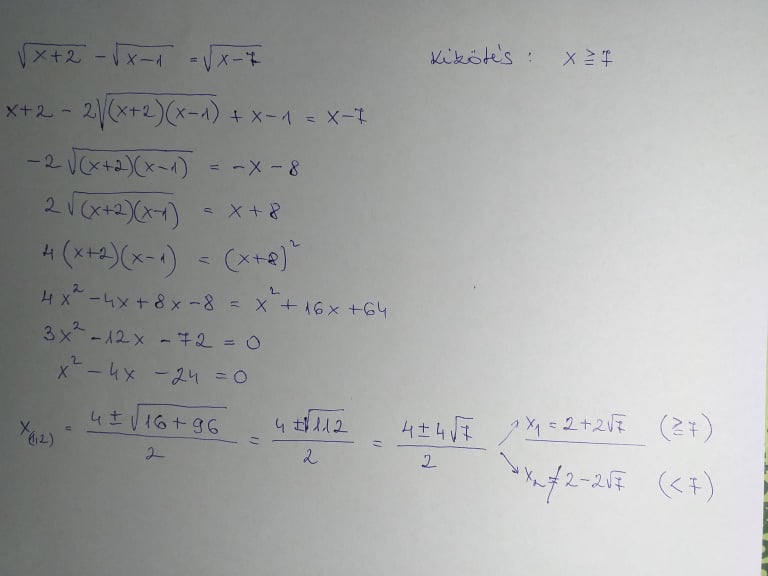 √(x+2) - √(x-1) = √(x-7) Kikötés: x ≧ 7
x+2 - 2√((x+2)(x-1)) + x-1 = x-7
-2√((x+2)(x-1)) = -x-8
2√((x+2)(x-1)) = x+8
4(x+2)(x-1) = (x+8)²
4x² - 4x + 8x - 8 = x² + 16x + 64
3x² - 12x - 72 = 0
x² - 4x - 24 = 0
x₍₁,₂₎ = (4 ± √(16+96))/2 = (4 ± √112)/2 = (4 ± 4√7)/2
x₁ = 2+2√7 (≧7)
x₂ ≠ 2-2√7 (<7)